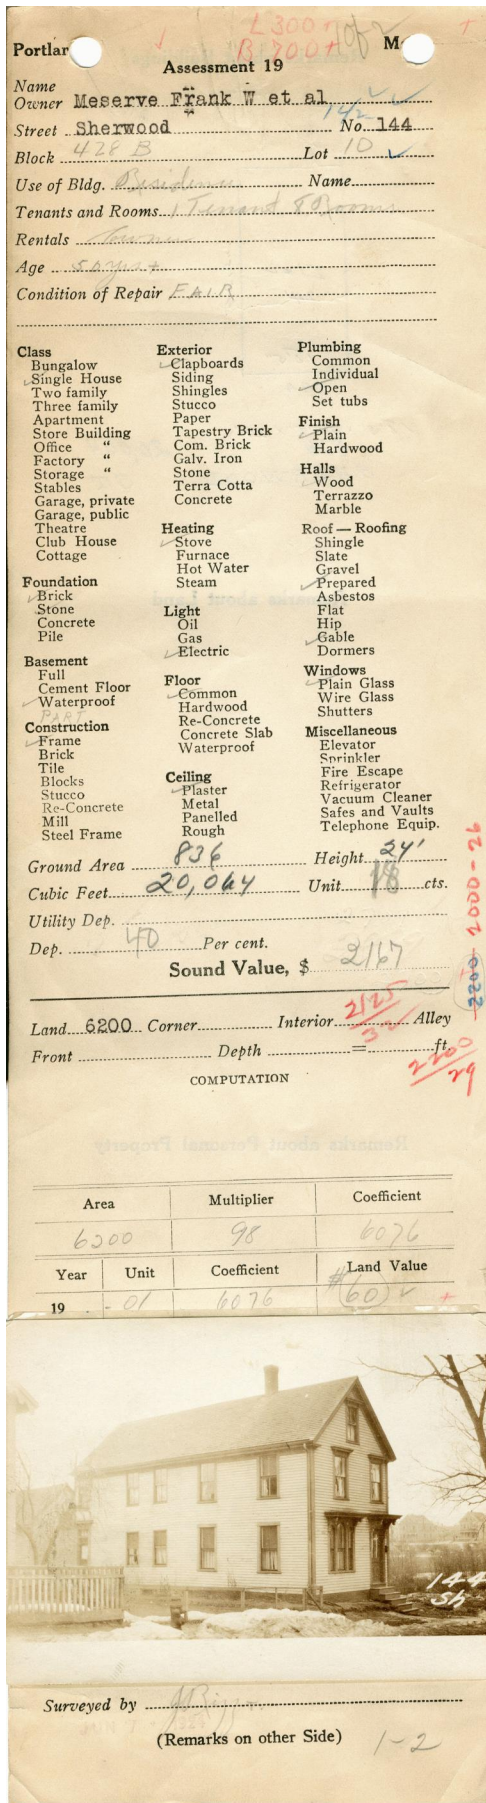 L 300+
B 700+ 1 of 2
+
Portlar M
Assessment 19
Name
Owner Meserve Frank W et al
142
Street Sherwood No. 144
Block 428 B Lot 10
Use of Bldg. Residence Name
Tenants and Rooms 1 Tenant 8 Rooms
Rentals Owner
Age 50 yrs +
Condition of Repair FAIR
Class
Bungalow
Single House
Two family
Three family
Apartment
Store Building
Office "
Factory "
Storage "
Stables
Garage, private
Garage, public
Theatre
Club House
Cottage
Foundation
Brick
Stone
Concrete
Pile
Basement
Full
Cement Floor
Waterproof
PART
Construction
Frame
Brick
Tile
Blocks
Stucco
Re-Concrete
Mill
Steel Frame
Exterior
Clapboards
Siding
Shingles
Stucco
Paper
Tapestry Brick
Com. Brick
Galv. Iron
Stone
Terra Cotta
Concrete
Heating
Stove
Furnace
Hot Water
Steam
Light
Oil
Gas
Electric
Floor
Common
Hardwood
Re-Concrete
Concrete Slab
Waterproof
Ceiling
Plaster
Metal
Panelled
Rough
Plumbing
Common
Individual
Open
Set tubs
Finish
Plain
Hardwood
Halls
Wood
Terrazzo
Marble
Roof — Roofing
Shingle
Slate
Gravel
Prepared
Asbestos
Flat
Hip
Gable
Dormers
Windows
Plain Glass
Wire Glass
Shutters
Miscellaneous
Elevator
Sprinkler
Fire Escape
Refrigerator
Vacuum Cleaner
Safes and Vaults
Telephone Equip.
Ground Area 836 Height 24'
Cubic Feet 20,064 Unit 18 cts.
Utility Dep.
Dep. 40 Per cent.
Sound Value, $ 2167
2000-26
2022
Land 6200 Corner Interior Alley
2125
Front Depth = ft.
2200
29
COMPUTATION
Remarks about Personal Property
Area Multiplier Coefficient
6200 98 6076
Year Unit Coefficient Land Value
19 - 01 6076 #60
+
144
Sh
Surveyed by
(Remarks on other Side)
1-2